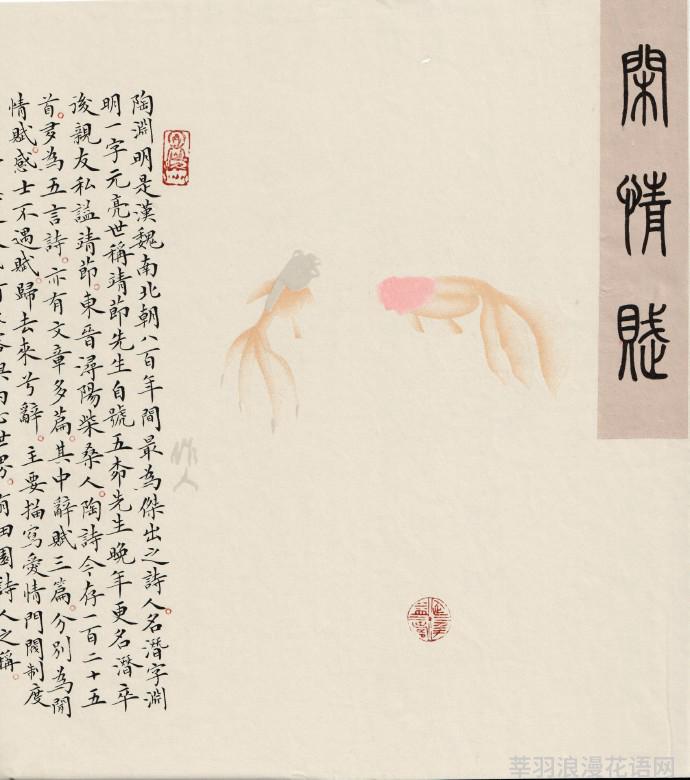 閑情賦
陶淵明是漢魏南北朝八百年間最為傑出之詩人名潛字淵
明一字元亮世稱靖節先生自號五柳先生晚年更名潛卒
後親友私謚靖節東晉潯陽柴桑人陶詩今存一百二十五
首多為五言詩亦有文章多篇其中辭賦三篇分別為閒
情賦感士不遇賦歸去來兮辭主要描寫愛情門閥制度
世界有田園詩人之稱
作人
莘羽浪漫花语网